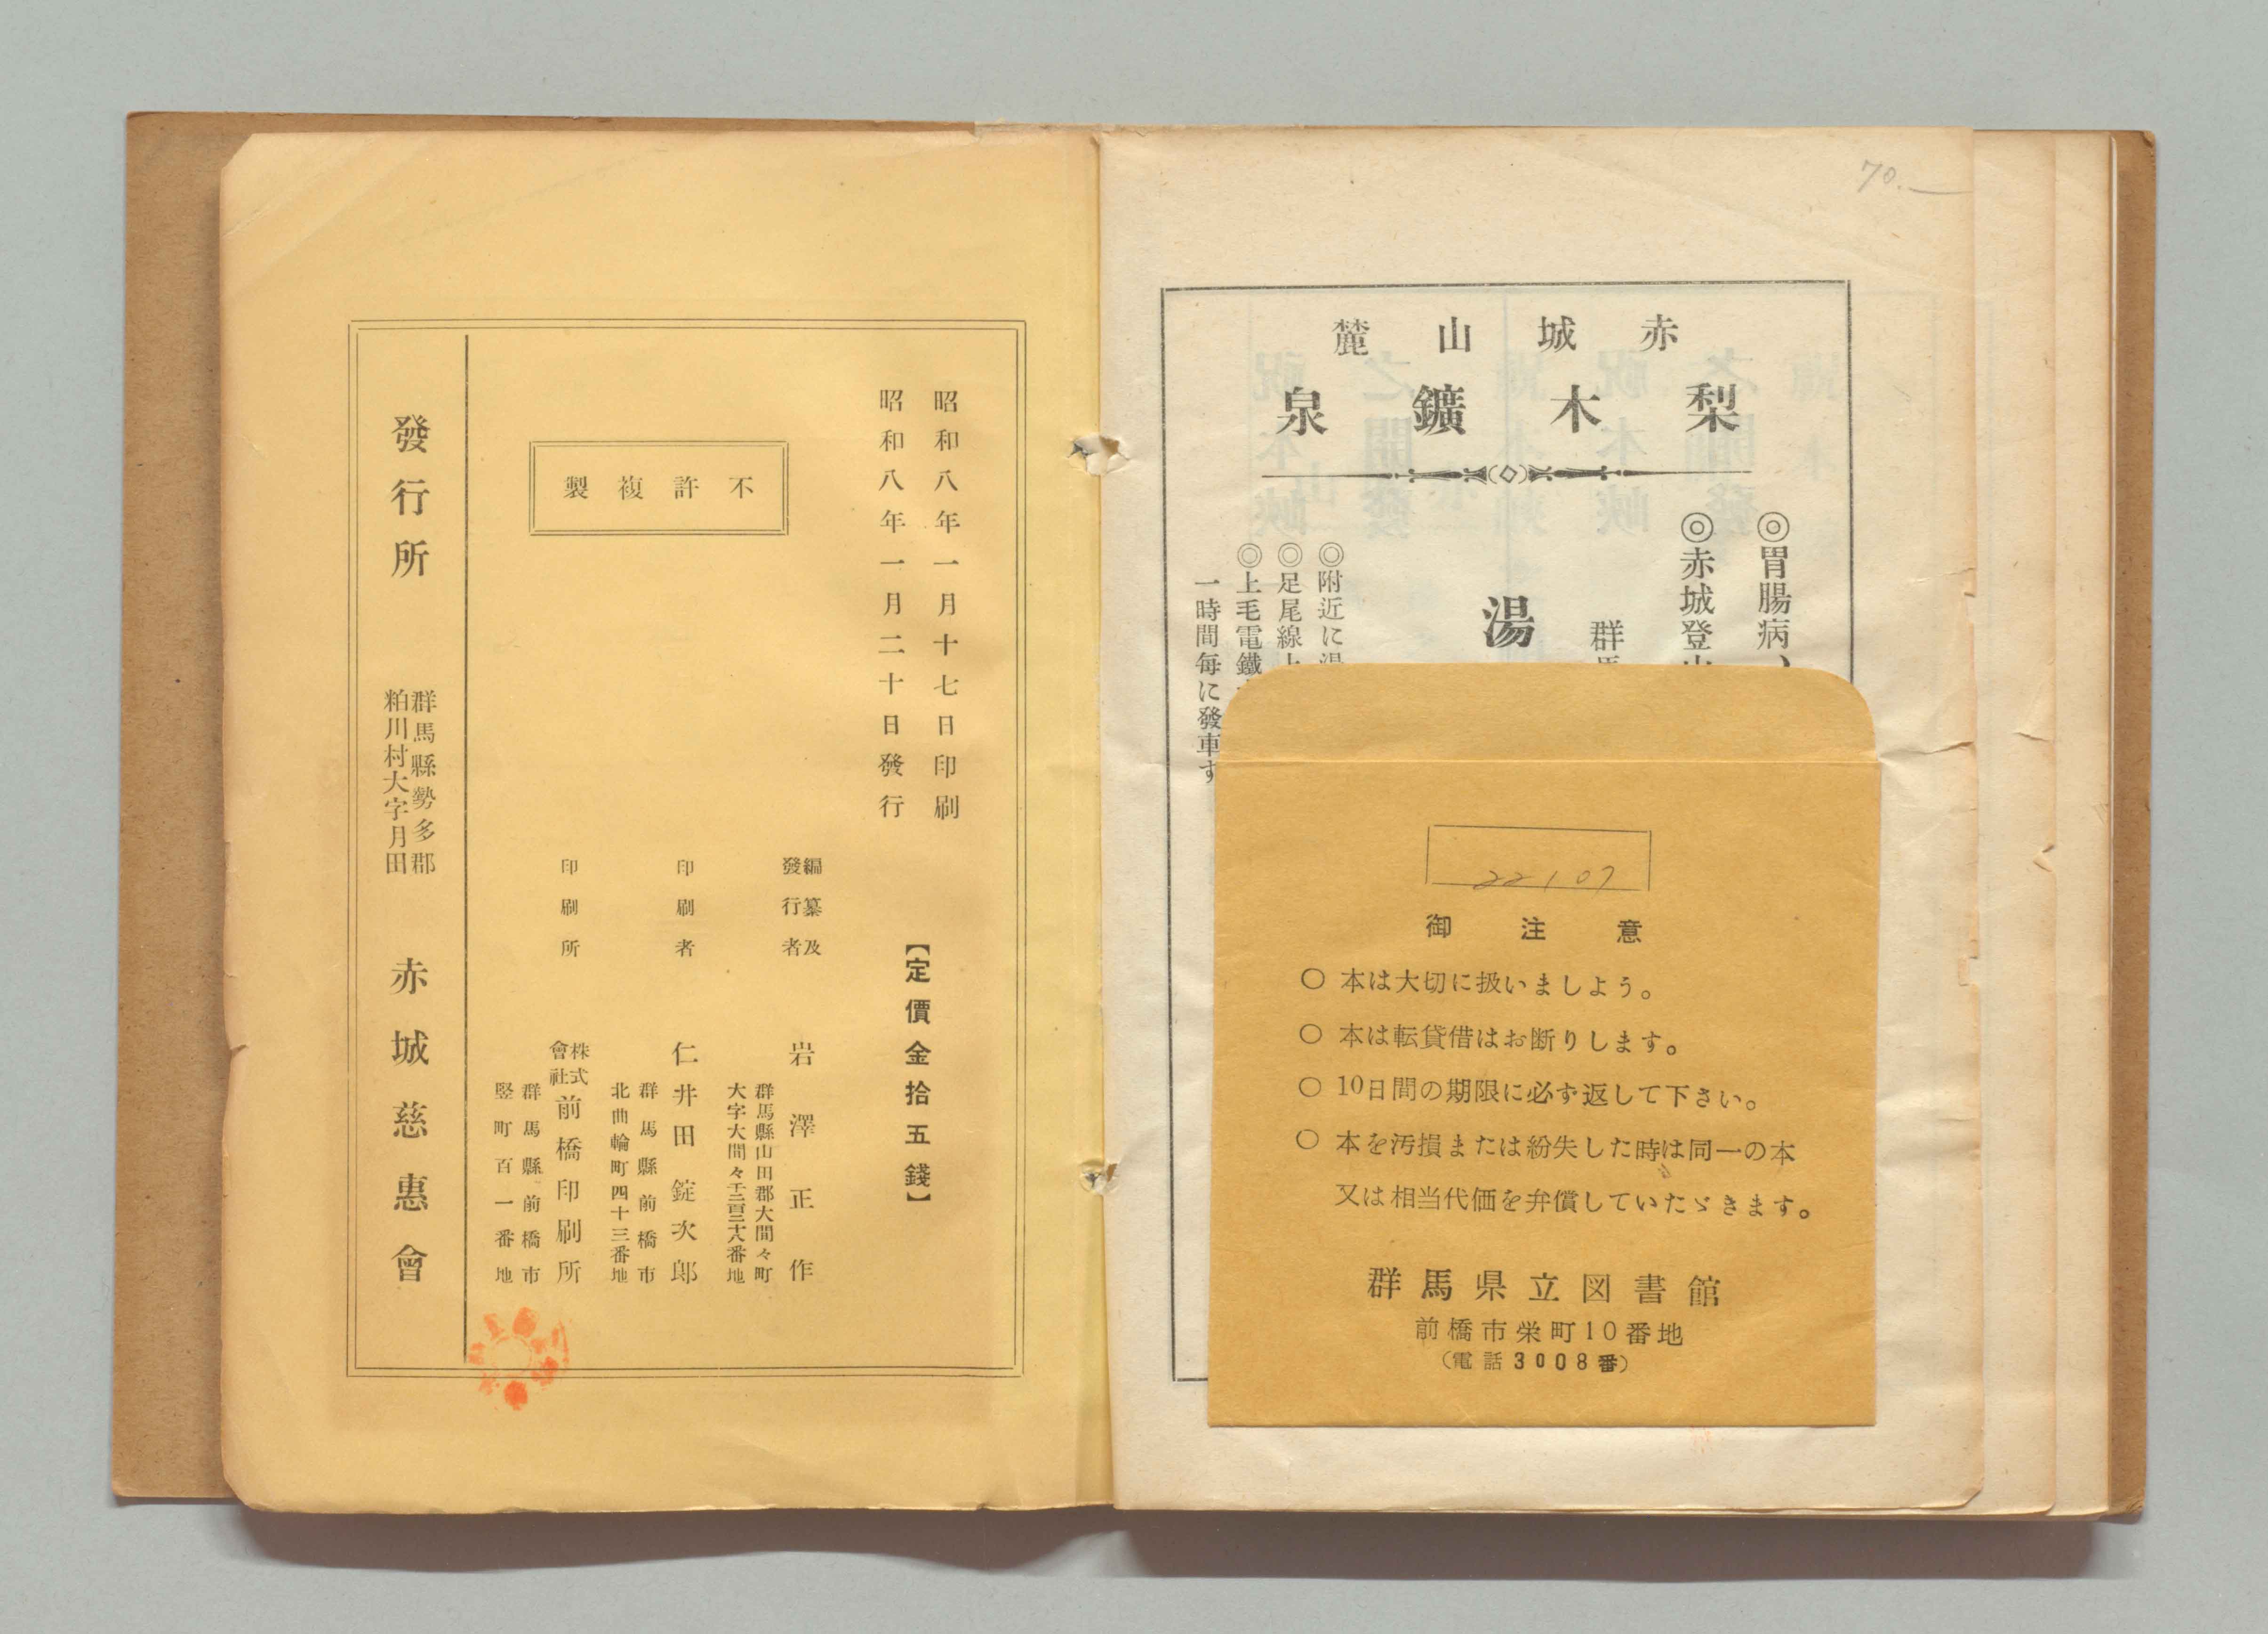 70.—
赤城山麓
梨木鑛泉
◎胃腸病、
◎赤城登山
群馬
湯
◎附近に湯
◎足尾線上
◎上毛電鐵
一時間每に發車す
22107
御注意
○ 本は大切に扱いましよう。
○ 本は転貸借はお断りします。
○ 10日間の期限に必ず返して下さい。
○ 本を汚損または紛失した時は同一の本
又は相当代価を弁償していたゞきます。
群馬県立図書館
前橋市栄町10番地
(電話3008番)
昭和八年一月十七日印刷
昭和八年一月二十日發行
【定價金拾五錢】
不許複製
編纂及
發行者
岩澤正作
群馬縣山田郡大間々町
大字大間々千二百三十八番地
印刷者
仁井田錠次郎
群馬縣前橋市
北曲輪町四十三番地
印刷所
株式
會社
前橋印刷所
群馬縣前橋市
竪町百一番地
發行所
群馬縣勢多郡
粕川村大字月田
赤城慈惠會